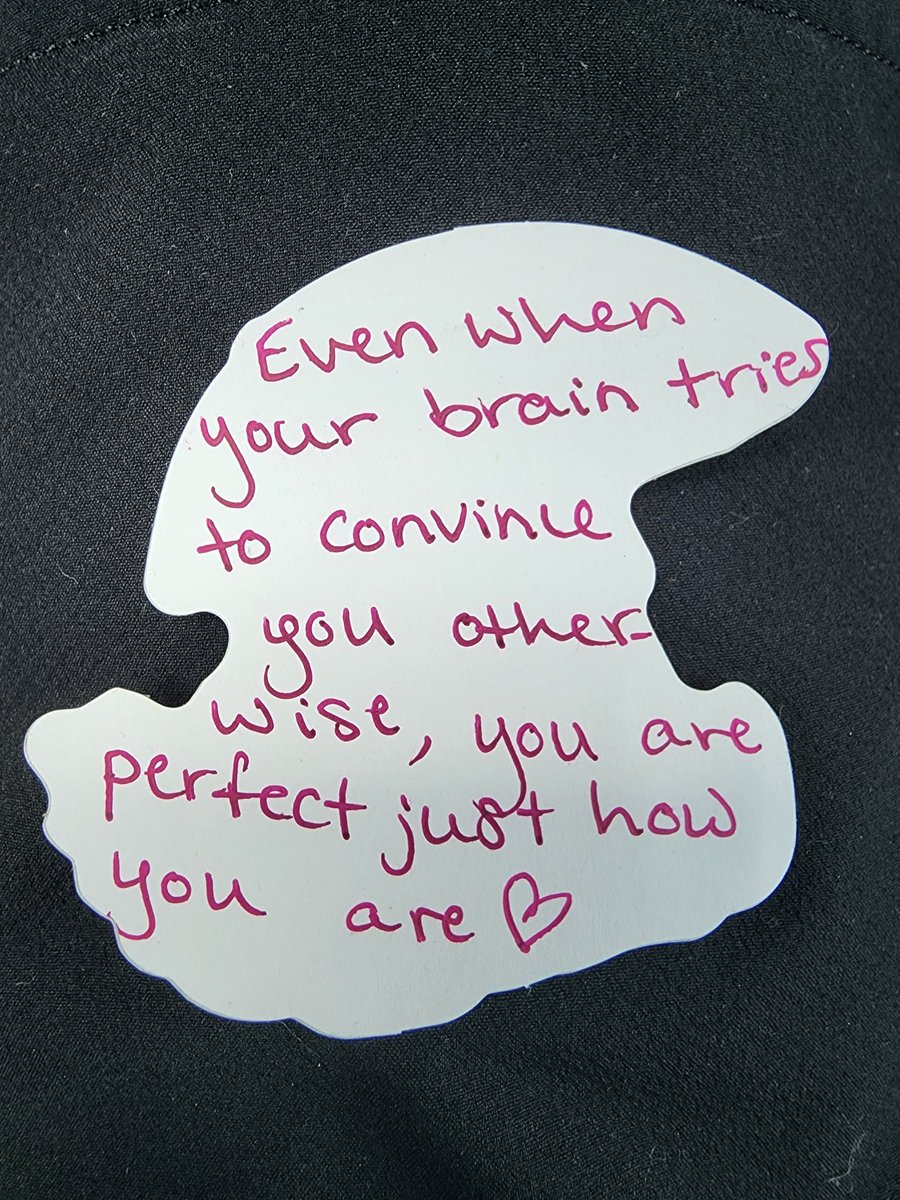 Even when
your brain tries
to convince
you other-
wise, you are
perfect just how
you are ♡